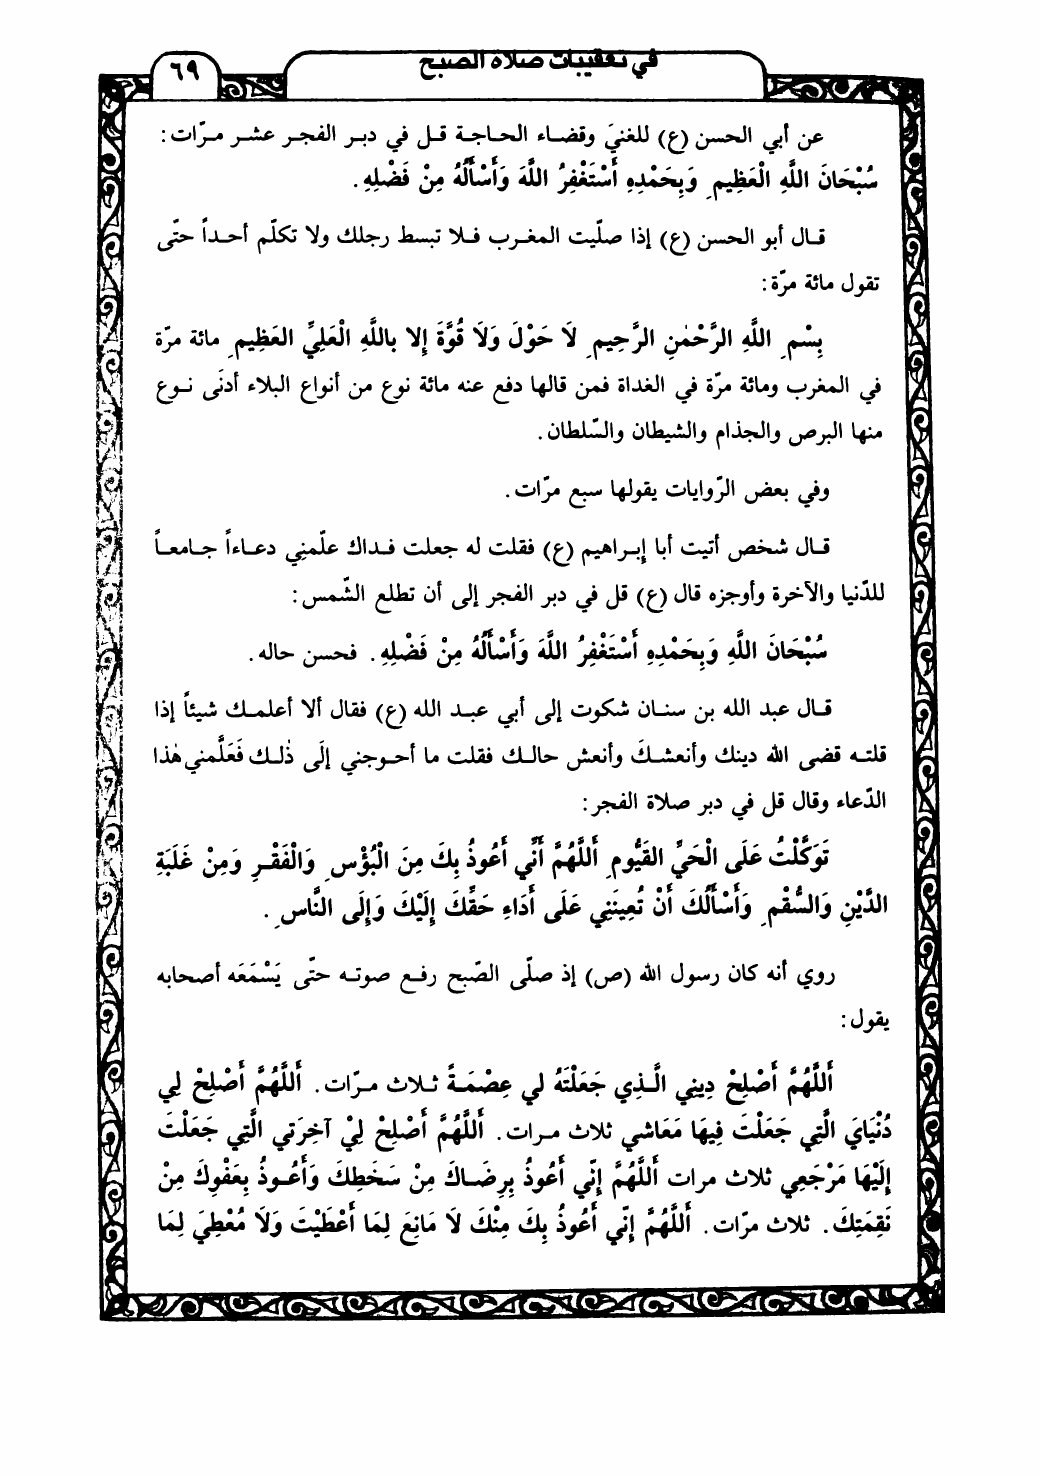 في تعقيبات صلاة الصبح
٦٩
عن أبي الحسن (ع) للغنيَ وقضـاء الحـاجـة قـل في دبـر الفجـر عشـر مـرّات:
سُبْحَانَ اللَّهِ الْعَظِيمِ وَبِحَمْدِهِ أَسْتَغْفِرُ اللَّهَ وَأَسْأَلُهُ مِنْ فَضْلِهِ.
قـال أبو الحسن (ع) إذا صلّيت المغـرب فـلا تبسط رجلك ولا تكلّم أحـداً حتّى
تقول مائة مرّة:
بِسْمِ اللَّهِ الرَّحْمٰنِ الرَّحِيمِ لَا حَوْلَ وَلَا قُوَّةَ إِلا بِاللَّهِ الْعَلِيِّ العَظِيمِ مائة مرّة
في المغرب ومائة مرّة في الغداة فمن قالها دفع عنه مائة نوع من أنواع البلاء أدنَى نـوع
منها البرص والجذام والشيطان والسّلطان.
وفي بعض الرّوايات يقولها سبع مرّات.
قـال شخص أتيت أبا إبـراهيم (ع) فقلت له جعلت فـداك علّمني دعـاءاً جـامعـاً
للدّنيا والآخرة وأوجزه قال (ع) قل في دبر الفجر إلى أن تطلع الشّمس:
سُبْحَانَ اللَّهِ وَبِحَمْدِهِ أَسْتَغْفِرُ اللَّهَ وَأَسْأَلُهُ مِنْ فَضْلِهِ. فحسن حاله.
قـال عبد الله بن سنـان شكوت إلى أبي عبـد الله (ع) فقال ألا أعلمـك شيئاً إذا
قلتـه قضى الله دينك وأنعشـكَ وأنعش حالـك فقلت ما أحـوجني إلَى ذٰلـك فَعَلَّمني هٰذا
الدّعاء وقال قل في دبر صلاة الفجر:
تَوَكَّلْتُ عَلَى الْحَيِّ القَيُّومِ أَللَّهُمَّ أَنِّي أَعُوذُ بِكَ مِنَ الْبُؤْسِ وَالْفَقْرِ وَمِنْ غَلَبَةِ
الدَّيْنِ وَالسُّقْمِ وَأَسْأَلُكَ أَنْ تُعِينَنِي عَلَى أَدَاءِ حَقِّكَ إِلَيْكَ وَإِلَى النَّاسِ.
روي أنه كان رسول الله (ص) إذ صلّى الصّبح رفـع صوتـه حتّى يَسْمَعَه أصحابه
يقول:
أَللَّهُمَّ أَصْلِحْ دِينِي الَّـذِي جَعَلْتَهُ لي عِصْمَـةً ثـلاث مـرّات. أَللَّهُمَّ أَصْلِحْ لِي
دُنْيَايَ الَّتِي جَعَلْتَ فِيهَا مَعَاشي ثلاث مـرات. أَللَّهُمَّ أَصْلِحْ لِيْ آخِرَتي الَّتِي جَعَلْتَ
إِلَيْهَا مَرْجَعِي ثلاث مرات أَللَّهُمَّ إِنِّي أَعُوذُ بِرِضَـاكَ مِنْ سَخَطِكَ وَأَعُـوذُ بِعَفْوِكَ مِنْ
نَقِمَتِكَ. ثلاث مرّات. أَللَّهُمَّ إِنّي أَعُوذُ بِكَ مِنْكَ لَا مَانِعَ لِمَا أَعْطَيْتَ وَلَا مُعْطِيَ لِمَا